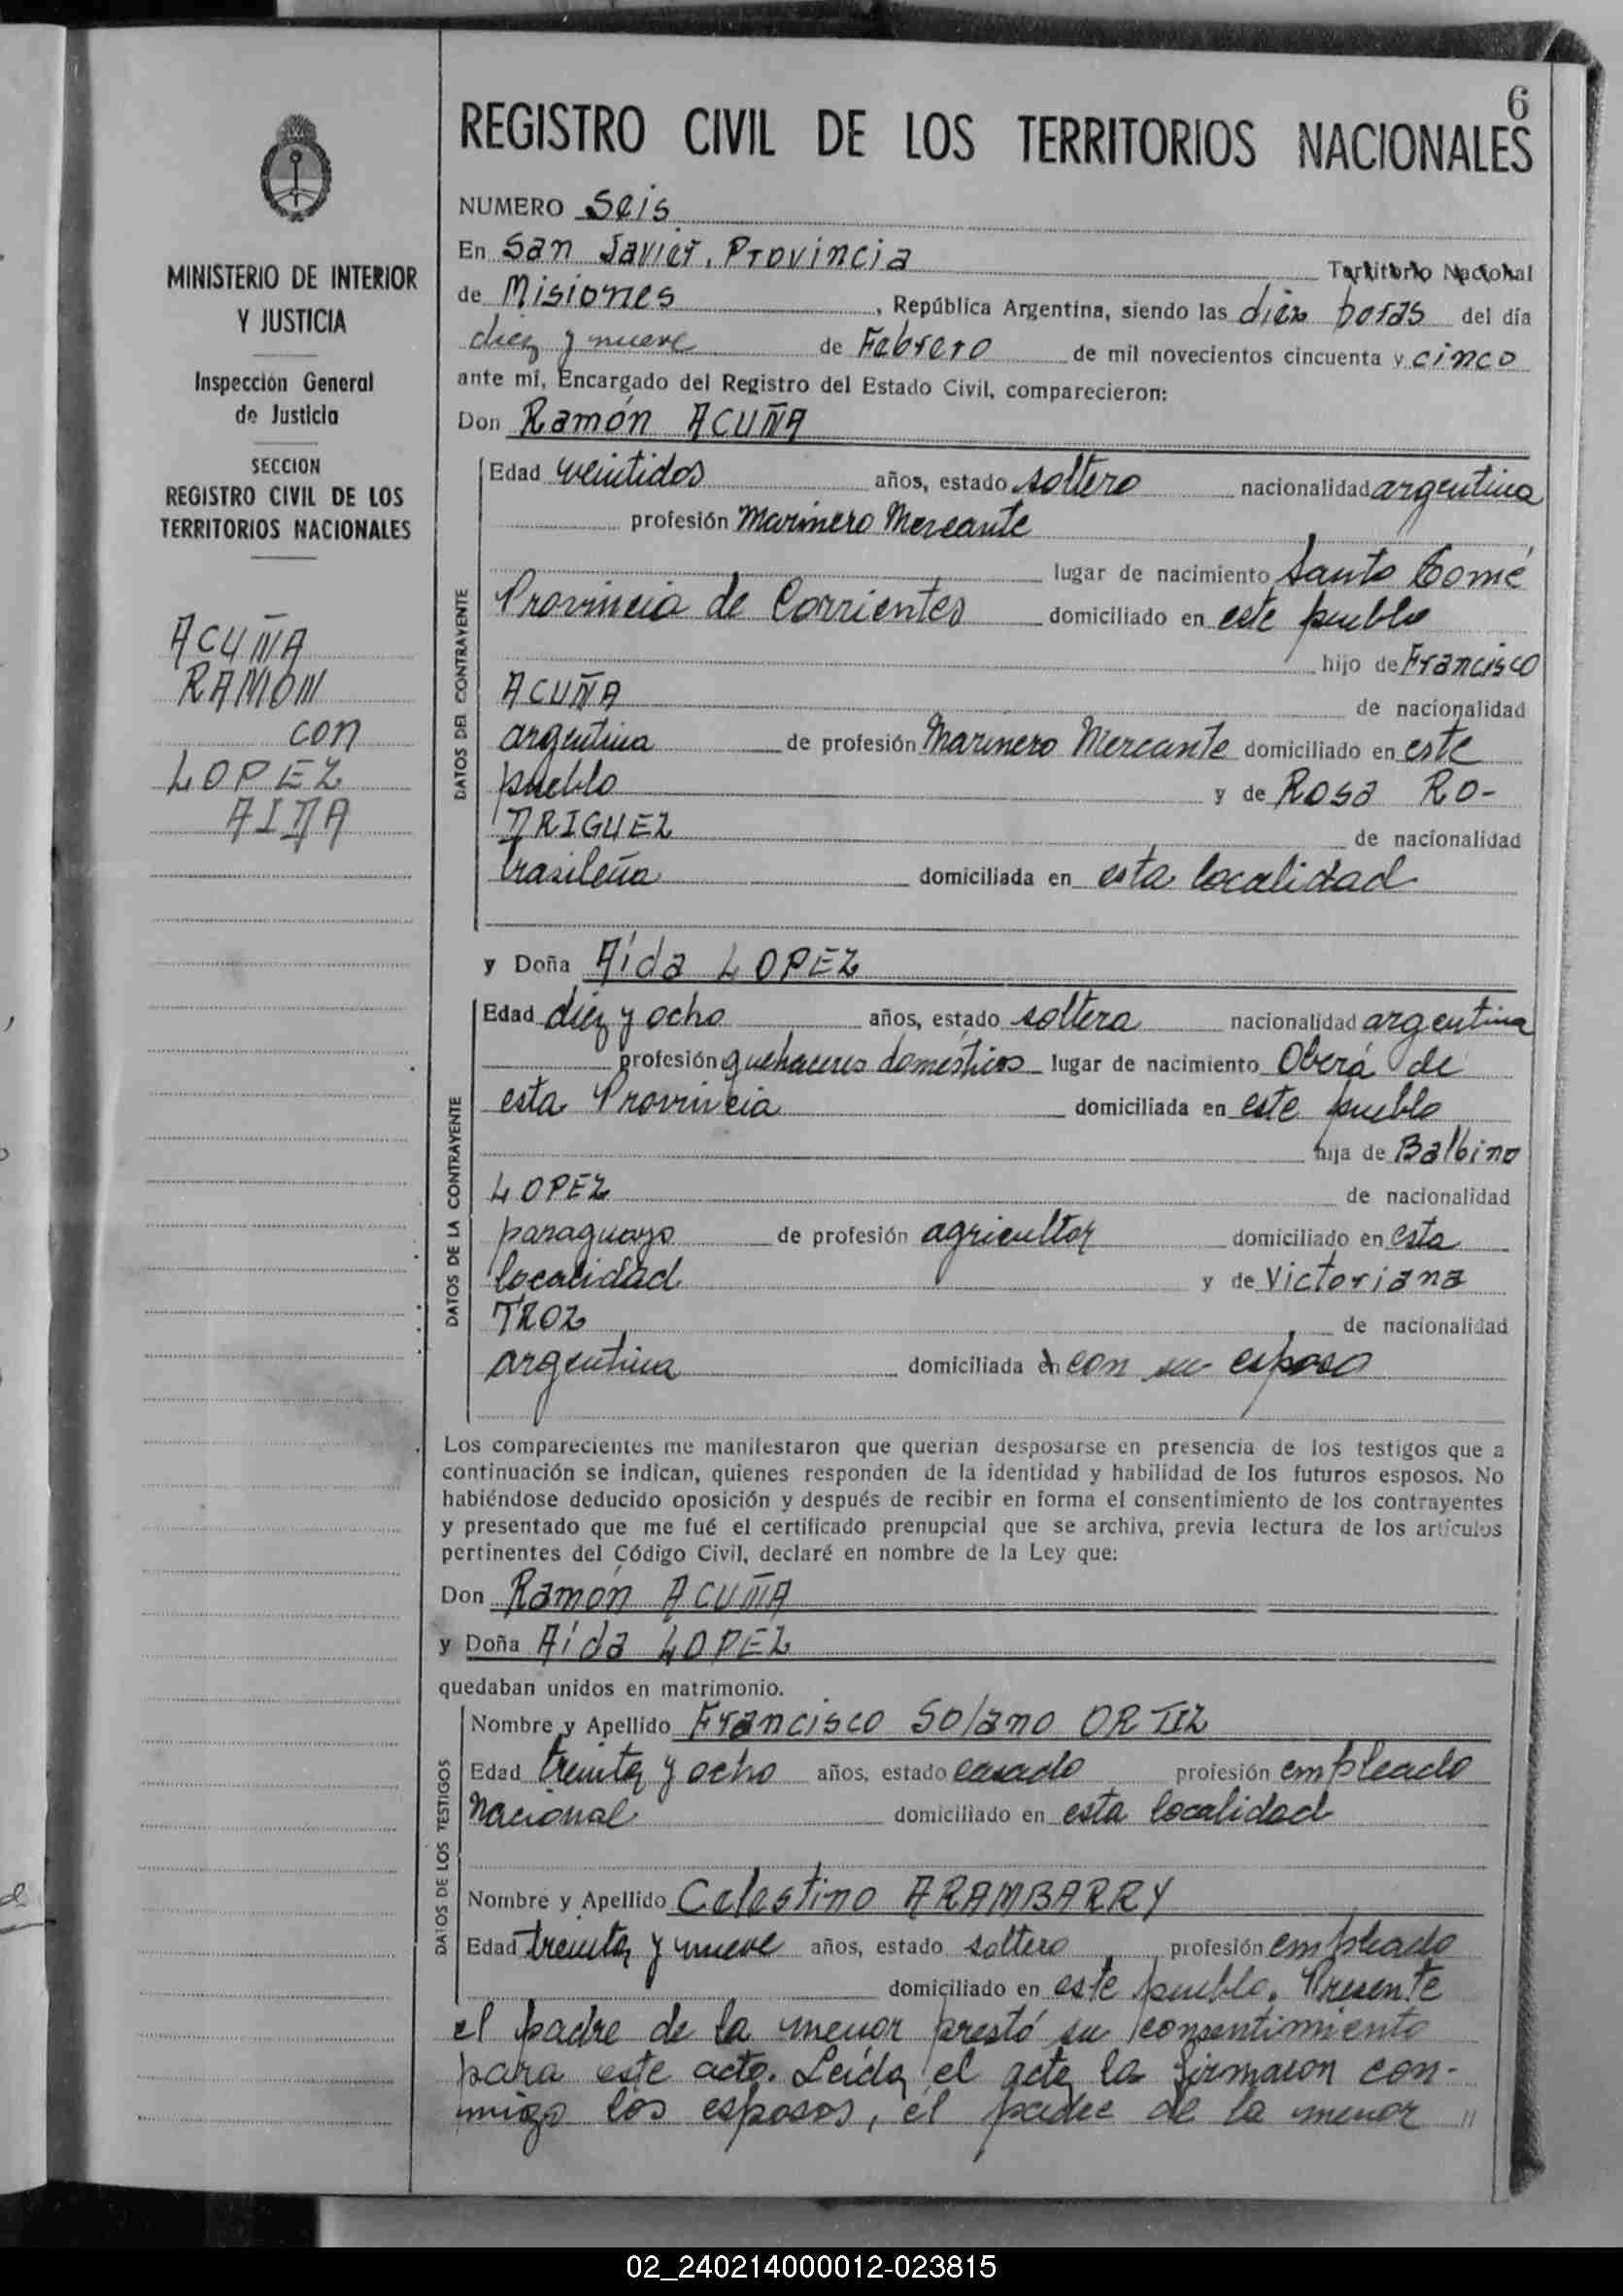 6
REGISTRO CIVIL DE LOS TERRITORIOS NACIONALES
NUMERO Seis
En San Javier, Provincia Territorio Nacional
de Misiones, República Argentina, siendo las diez horas del día
diez y nueve de Febrero de mil novecientos cincuenta y cinco
ante mí, Encargado del Registro del Estado Civil, comparecieron:
Don Ramón ACUÑA
MINISTERIO DE INTERIOR
Y JUSTICIA
Inspección General
de Justicia
SECCION
REGISTRO CIVIL DE LOS
TERRITORIOS NACIONALES
ACUÑA
RAMON
con
LOPEZ
AIDA
DATOS DEL CONTRAYENTE
Edad veintidos años, estado soltero nacionalidad argentina
profesión Marinero Mercante
lugar de nacimiento Santo Tomé
Provincia de Corrientes domiciliado en este pueblo
hijo de Francisco
ACUÑA de nacionalidad
argentina de profesión Marinero Mercante domiciliado en este
pueblo y de Rosa RO-
DRIGUEZ de nacionalidad
brasileña domiciliada en esta localidad
y Doña Aída LOPEZ
DATOS DE LA CONTRAYENTE
Edad diez y ocho años, estado soltera nacionalidad argentina
profesión quehaceres domésticos lugar de nacimiento Oberá de
esta Provincia domiciliada en este pueblo
hija de Balbino
LOPEZ de nacionalidad
paraguayo de profesión agricultor domiciliado en esta
localidad y de Victoriana
TROZ de nacionalidad
argentina domiciliada en con su esposo
Los comparecientes me manifestaron que querían desposarse en presencia de los testigos que a
continuación se indican, quienes responden de la identidad y habilidad de los futuros esposos. No
habiéndose deducido oposición y después de recibir en forma el consentimiento de los contrayentes
y presentado que me fué el certificado prenupcial que se archiva, previa lectura de los artículos
pertinentes del Código Civil, declaré en nombre de la Ley que:
Don Ramón ACUÑA
y Doña Aída LOPEZ
quedaban unidos en matrimonio.
DATOS DE LOS TESTIGOS
Nombre y Apellido Francisco Solano ORTIZ
Edad treinta y ocho años, estado casado profesión empleado
Nacional domiciliado en esta localidad
Nombre y Apellido Celestino ARAMBARRY
Edad treinta y nueve años, estado soltero profesión empleado
domiciliado en este pueblo. Presente
el padre de la menor prestó su consentimiento
para este acto. Leída el acta la firmaron con-
migo los esposos, el padre de la menor "
02_240214000012-023815